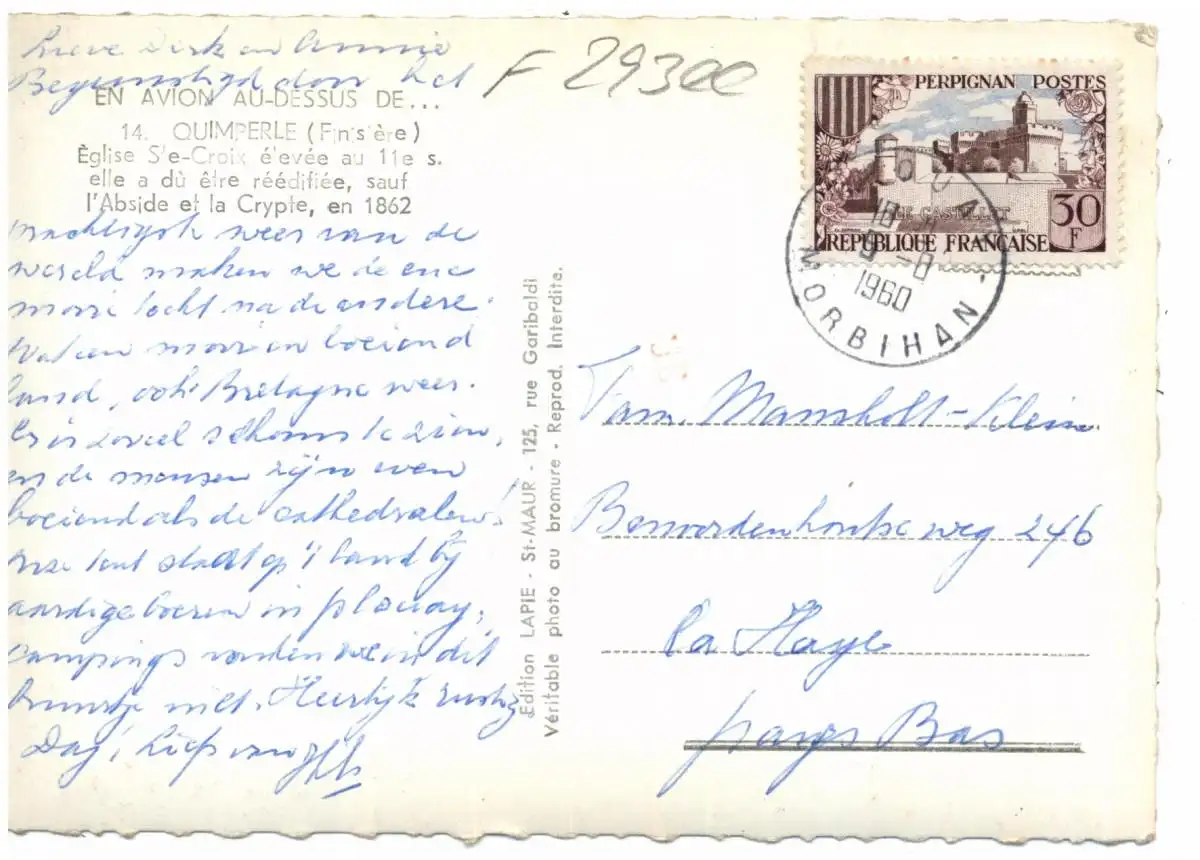 Lieve Dirk en Annie
Begunstigd door het
EN AVION AU-DESSUS DE...
14. QUIMPERLE (Finistère)
Église Ste-Croix élevée au 11e s.
elle a dû être réédifiée, sauf
l'Abside et la Crypte, en 1862
prachtigste weer van de
wereld maken we de ene
mooie tocht na de andere.
Wat een mooi en boeiend
land, ook Bretagne weer.
Er is zoveel schoons te zien,
en de mensen zijn even
boeiend als de cathedralen!
Onze tent staat op 't land bij
aardige boeren in Plouay,
campings vonden we in dit
buurtje niet. Heerlijk rustig
Dag! Liefs van
F 29300
PERPIGNAN POSTES
LE CASTILLET
30 F
RÉPUBLIQUE FRANÇAISE
1960
MORBIHAN
Edition LAPIE - St-MAUR - 125, rue Garibaldi
Véritable photo au bromure - Reprod. Interdite.
Fam. Mansholt-Klein
Benoordenhoutseweg 246
La Haye
pays Bas